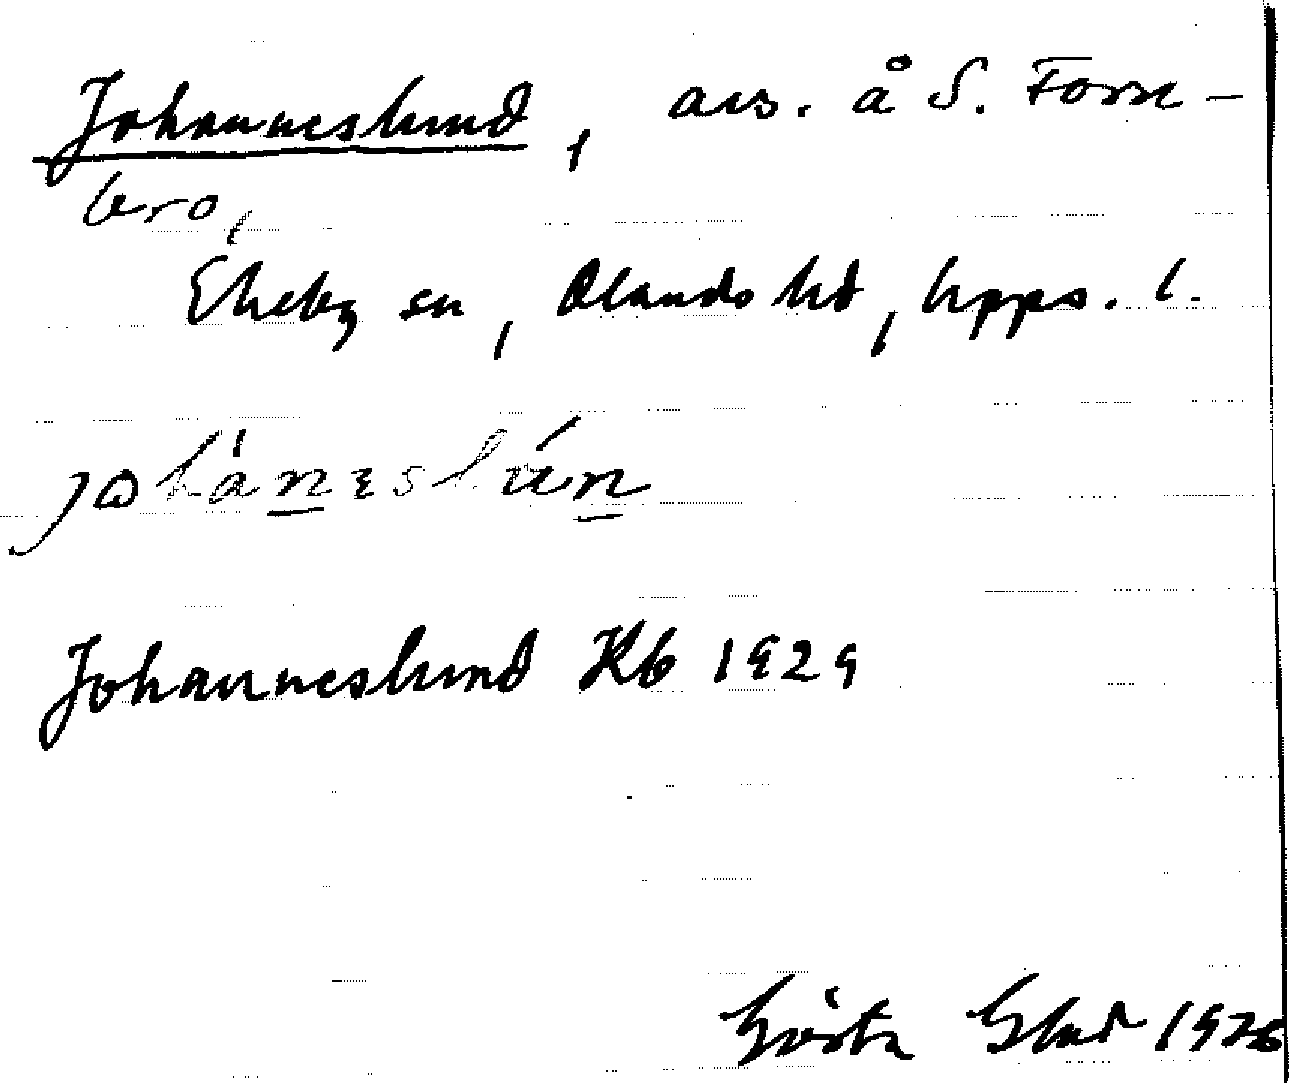 Johanneslund, avs. å S. Forse-
bro,
Ekeby sn, Olands hd, Upps. l.
johánɛslún
Johanneslund Kb 1929
Gösta 1926